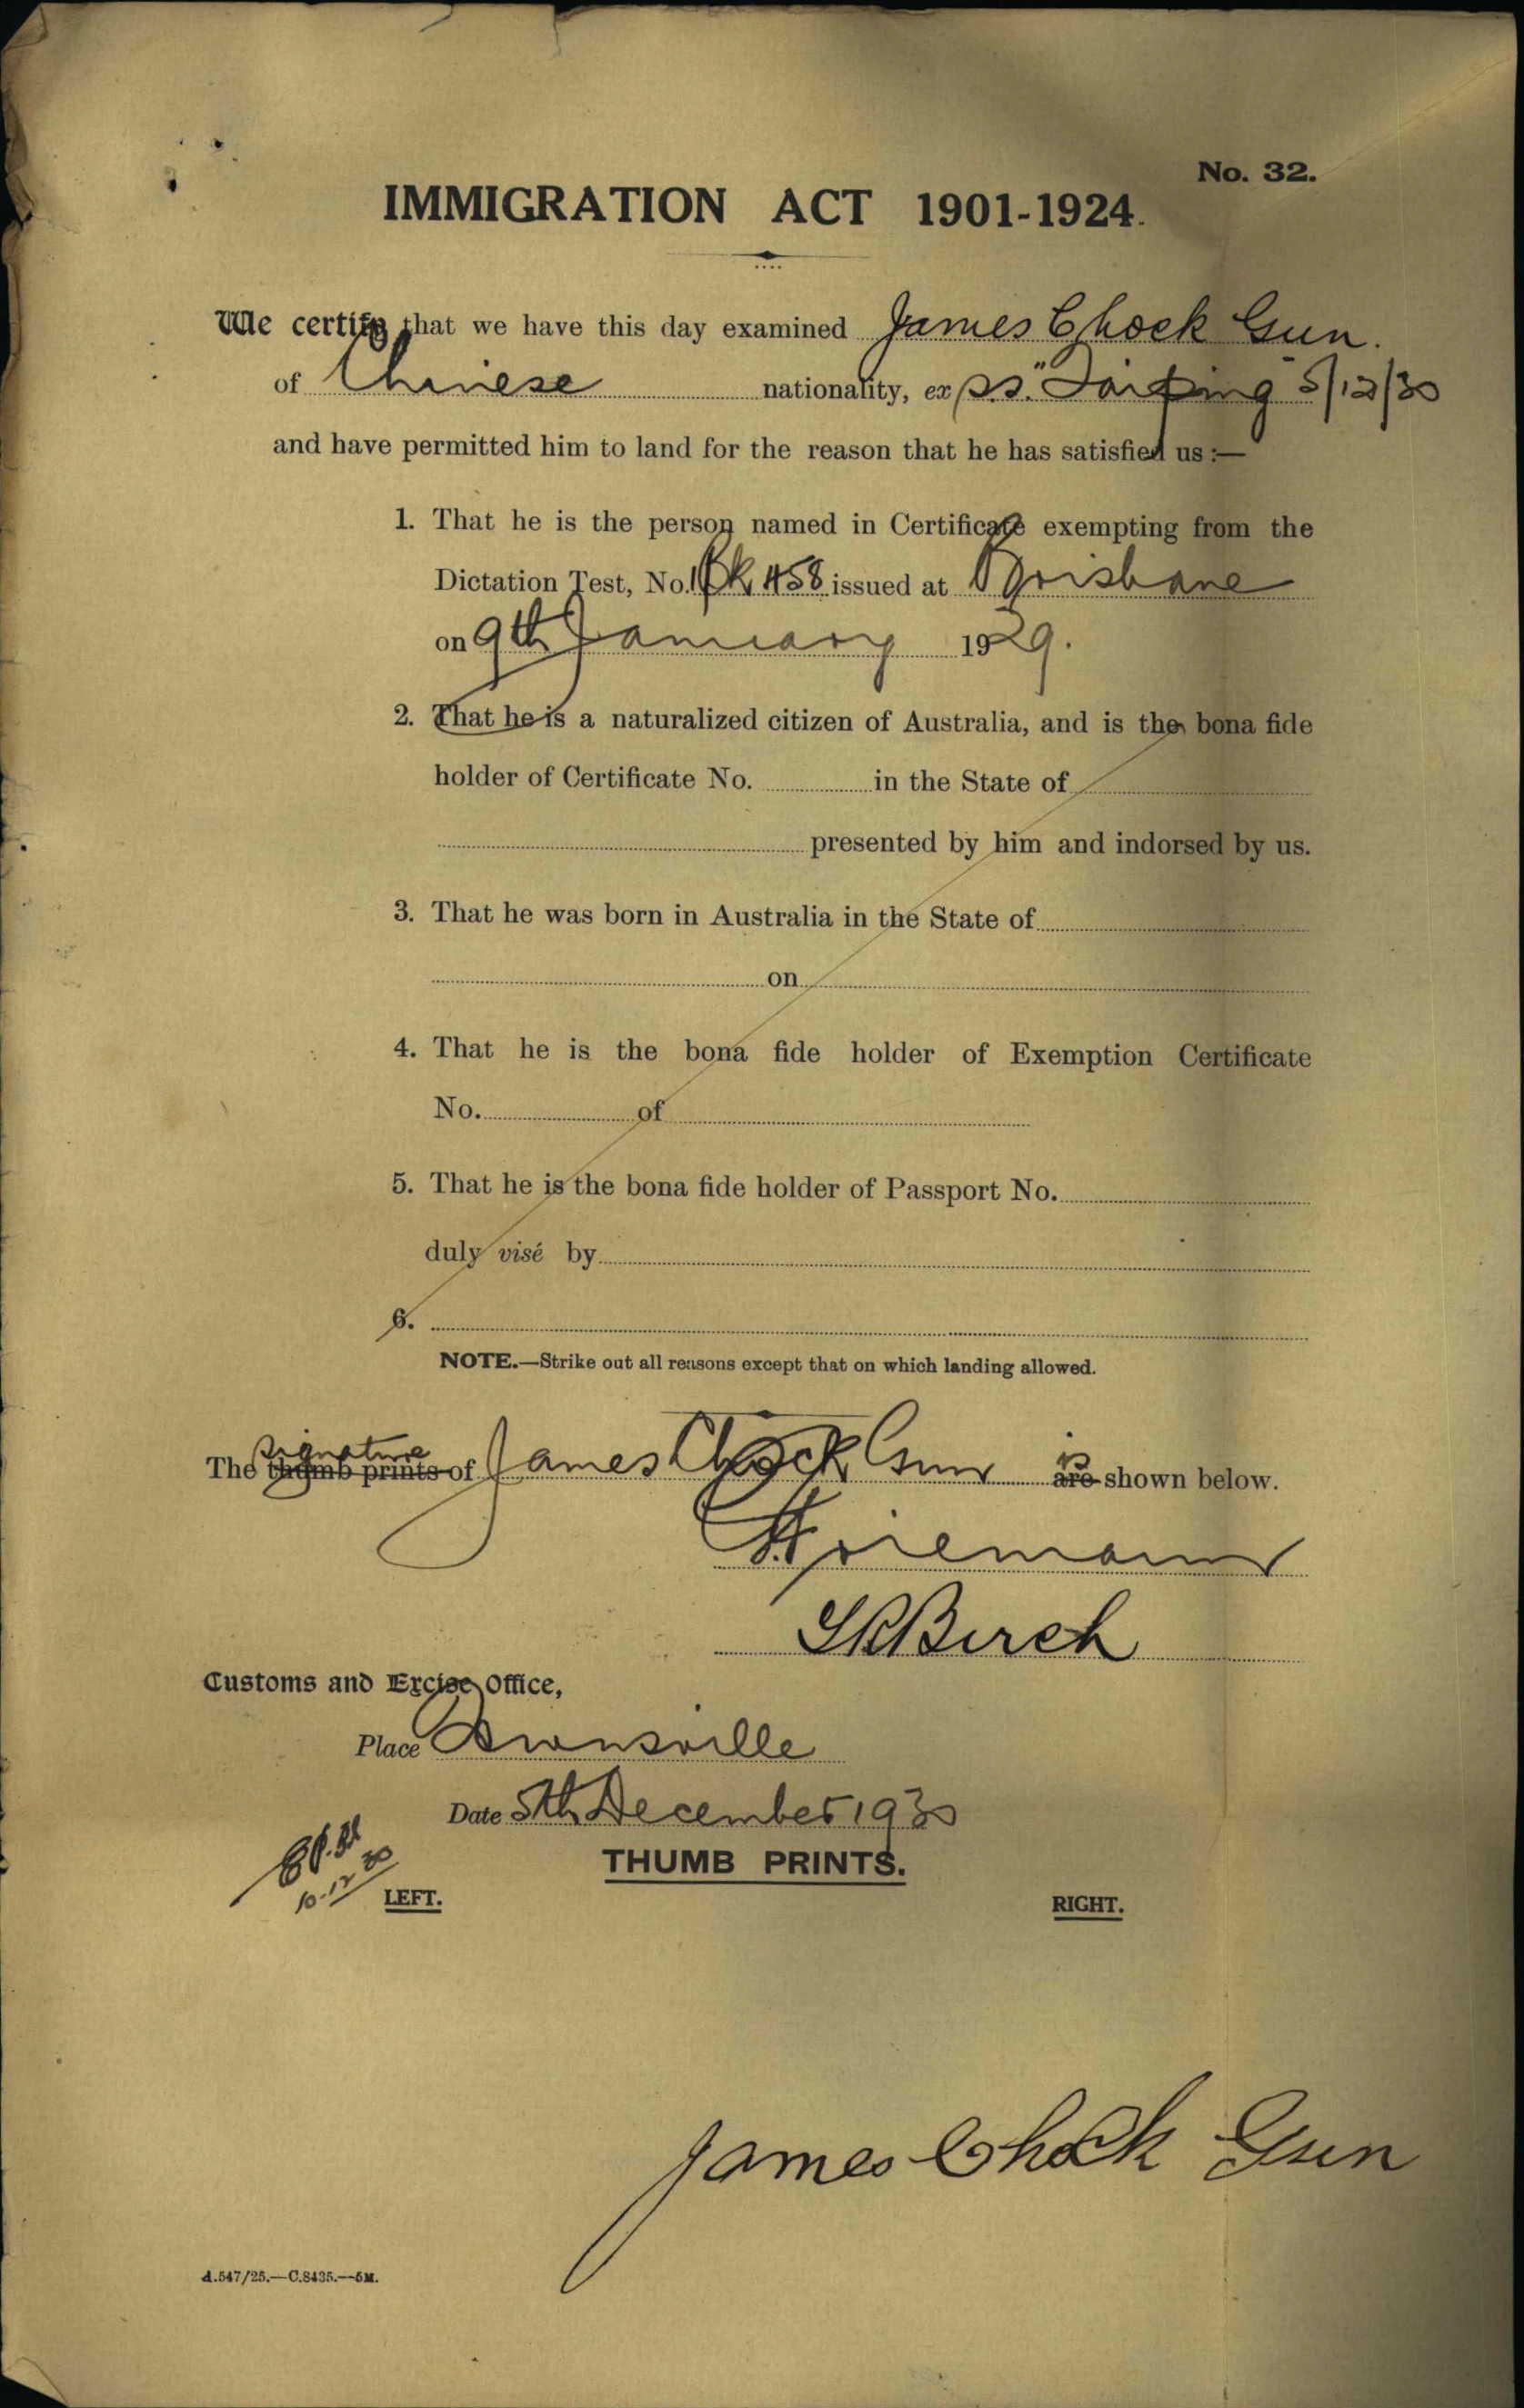 No. 32.
IMMIGRATION ACT 1901-1924.
We certify that we have this day examined James Chock Gun.
of Chinese nationality, ex s.s. "Taiping" 5/12/30
and have permitted him to land for the reason that he has satisfied us :—
1. That he is the person named in Certificate exempting from the
Dictation Test, No. 458 issued at Brisbane
on 9th January 1929.
2. That he is a naturalized citizen of Australia, and is the bona fide
holder of Certificate No. in the State of
presented by him and indorsed by us.
3. That he was born in Australia in the State of
on
4. That he is the bona fide holder of Exemption Certificate
No. of
5. That he is the bona fide holder of Passport No.
duly visé by
6.
NOTE.—Strike out all reasons except that on which landing allowed.
signature is
The thumb prints of James Chock Gun are shown below.
Birch
Customs and Excise Office,
Place Townsville
Date 5th December 1930
THUMB PRINTS.
10-12-30
LEFT. RIGHT.
James Chock Gun
A.547/25.—C.8435.—5M.